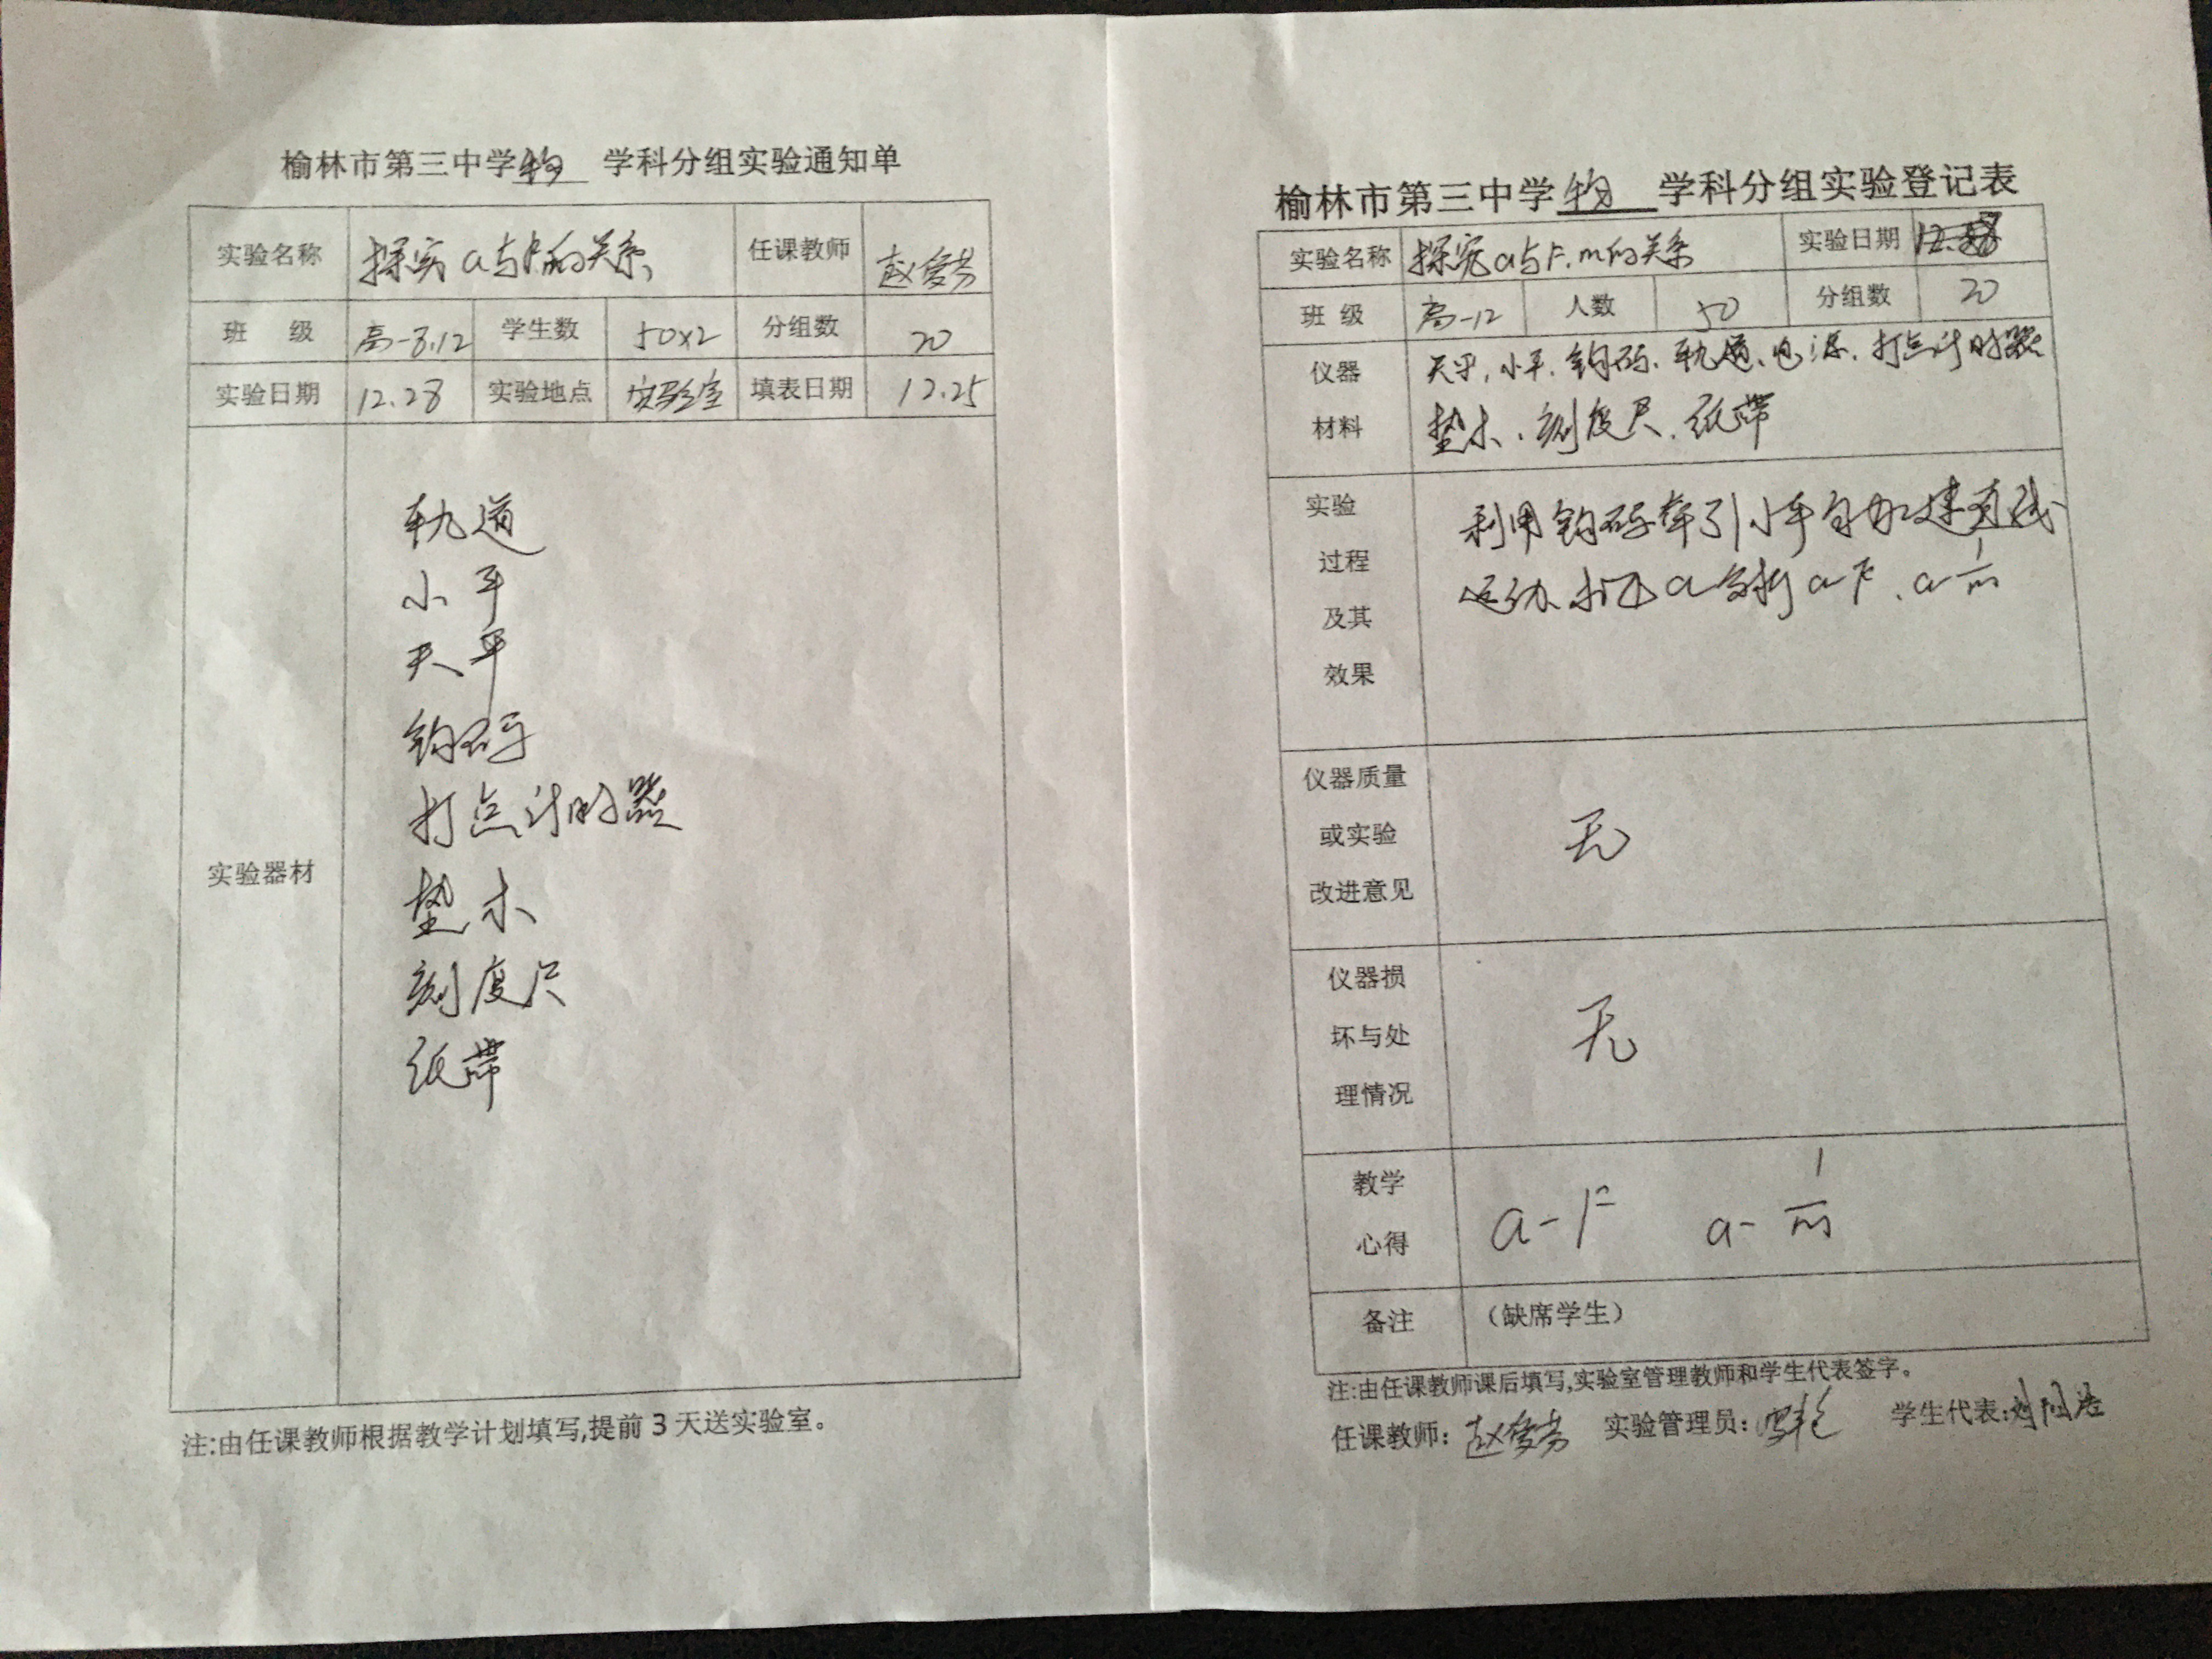 榆林市第三中学物 学科分组实验通知单
实验名称 探究a与F.m的关系 任课教师 赵爱芬
班 级 高一8.12 学生数 50×2 分组数 20
实验日期 12.28 实验地点 实验室 填表日期 12.25
实验器材
轨道
小车
天平
钩码
打点计时器
垫木
刻度尺
纸带
注:由任课教师根据教学计划填写,提前3天送实验室。
榆林市第三中学物 学科分组实验登记表
实验名称 探究a与F.m的关系 实验日期 12.28
班 级 高一12 人数 50 分组数 20
仪器
材料
天平,小车.钩码.轨道、电源.打点计时器
垫木.刻度尺.纸带
实验
过程
及其
效果
利用钩码牵引小车匀加速直线
运动.求出a分析a-F、a-1/m
仪器质量
或实验
改进意见
无
仪器损
坏与处
理情况
无
教学
心得
a-F a-1/m
备注 (缺席学生)
注:由任课教师课后填写,实验室管理教师和学生代表签字。
任课教师: 赵爱芬 实验管理员: 学生代表: